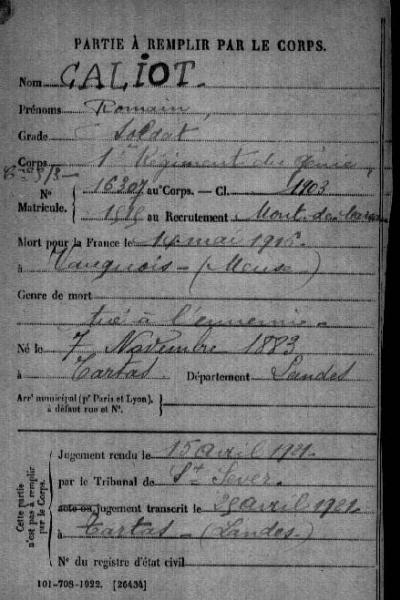 PARTIE À REMPLIR PAR LE CORPS.
Nom GALIOT.
Prénoms Romain
Grade Soldat
Corps 1er Régiment du Génie
Cie
N° 16307 au Corps. — Cl. 1903
Matricule. au Recrutement Mont-de-Marsan
Mort pour la France le 14 mai 1915
à Vauquois - (Meuse)
Genre de mort
tué à l'ennemi.
Né le 7 Novembre 1883
à Tartas. Département Landes
Arrt municipal (pr Paris et Lyon),
à défaut rue et N°.
Cette partie
n'est pas à remplir
par le Corps.
Jugement rendu le 15 avril 1921.
par le Tribunal de St Sever.
acte ou jugement transcrit le 29 avril 1921.
à Tartas - (Landes)
N° du registre d'état civil
101-708-1922. [26434]